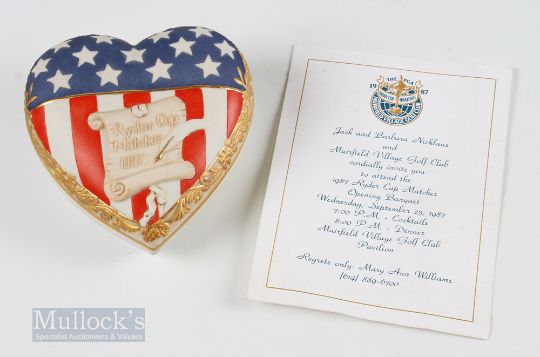 Ryder Cup
Matches
1987
THE PGA
19 87
Jack and Barbara Nicklaus
and
Muirfield Village Golf Club
cordially invite you
to attend the
1987 Ryder Cup Matches
Opening Banquet
Wednesday, September 23, 1987
7:00 P.M. - Cocktails
8:00 P.M. - Dinner
Muirfield Village Golf Club
Pavilion
Regrets only: Mary Ann Williams
(614) 889-6700
Mullock's
Specialist Auctioneers & Valuers